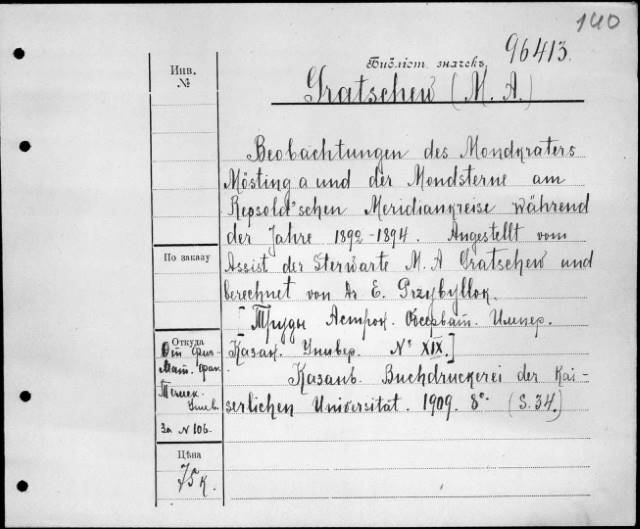 140
Библіот. значекъ 96413.
Инв.
№
Gratschew (M. A.)
Beobachtungen des Mondkraters
Mösting a und der Mondsterne am
Repsold'schen Meridiankreise während
der Jahre 1892-1894. Angestellt vom
По заказу
Assist der Sterwarte M. A Gratschew und
berechnet von Dr E. Przybyllok.
[Труды Астрон. Обсерват. Импер.
Откуда
Казан. Универ. № XIX.]
От физ-
Мат. фак.
Казань. Buchdruckerei der Kai-
serlichen Universität. 1909. 8°. (S. 34.)
За № 106.
Цѣна
75 к.